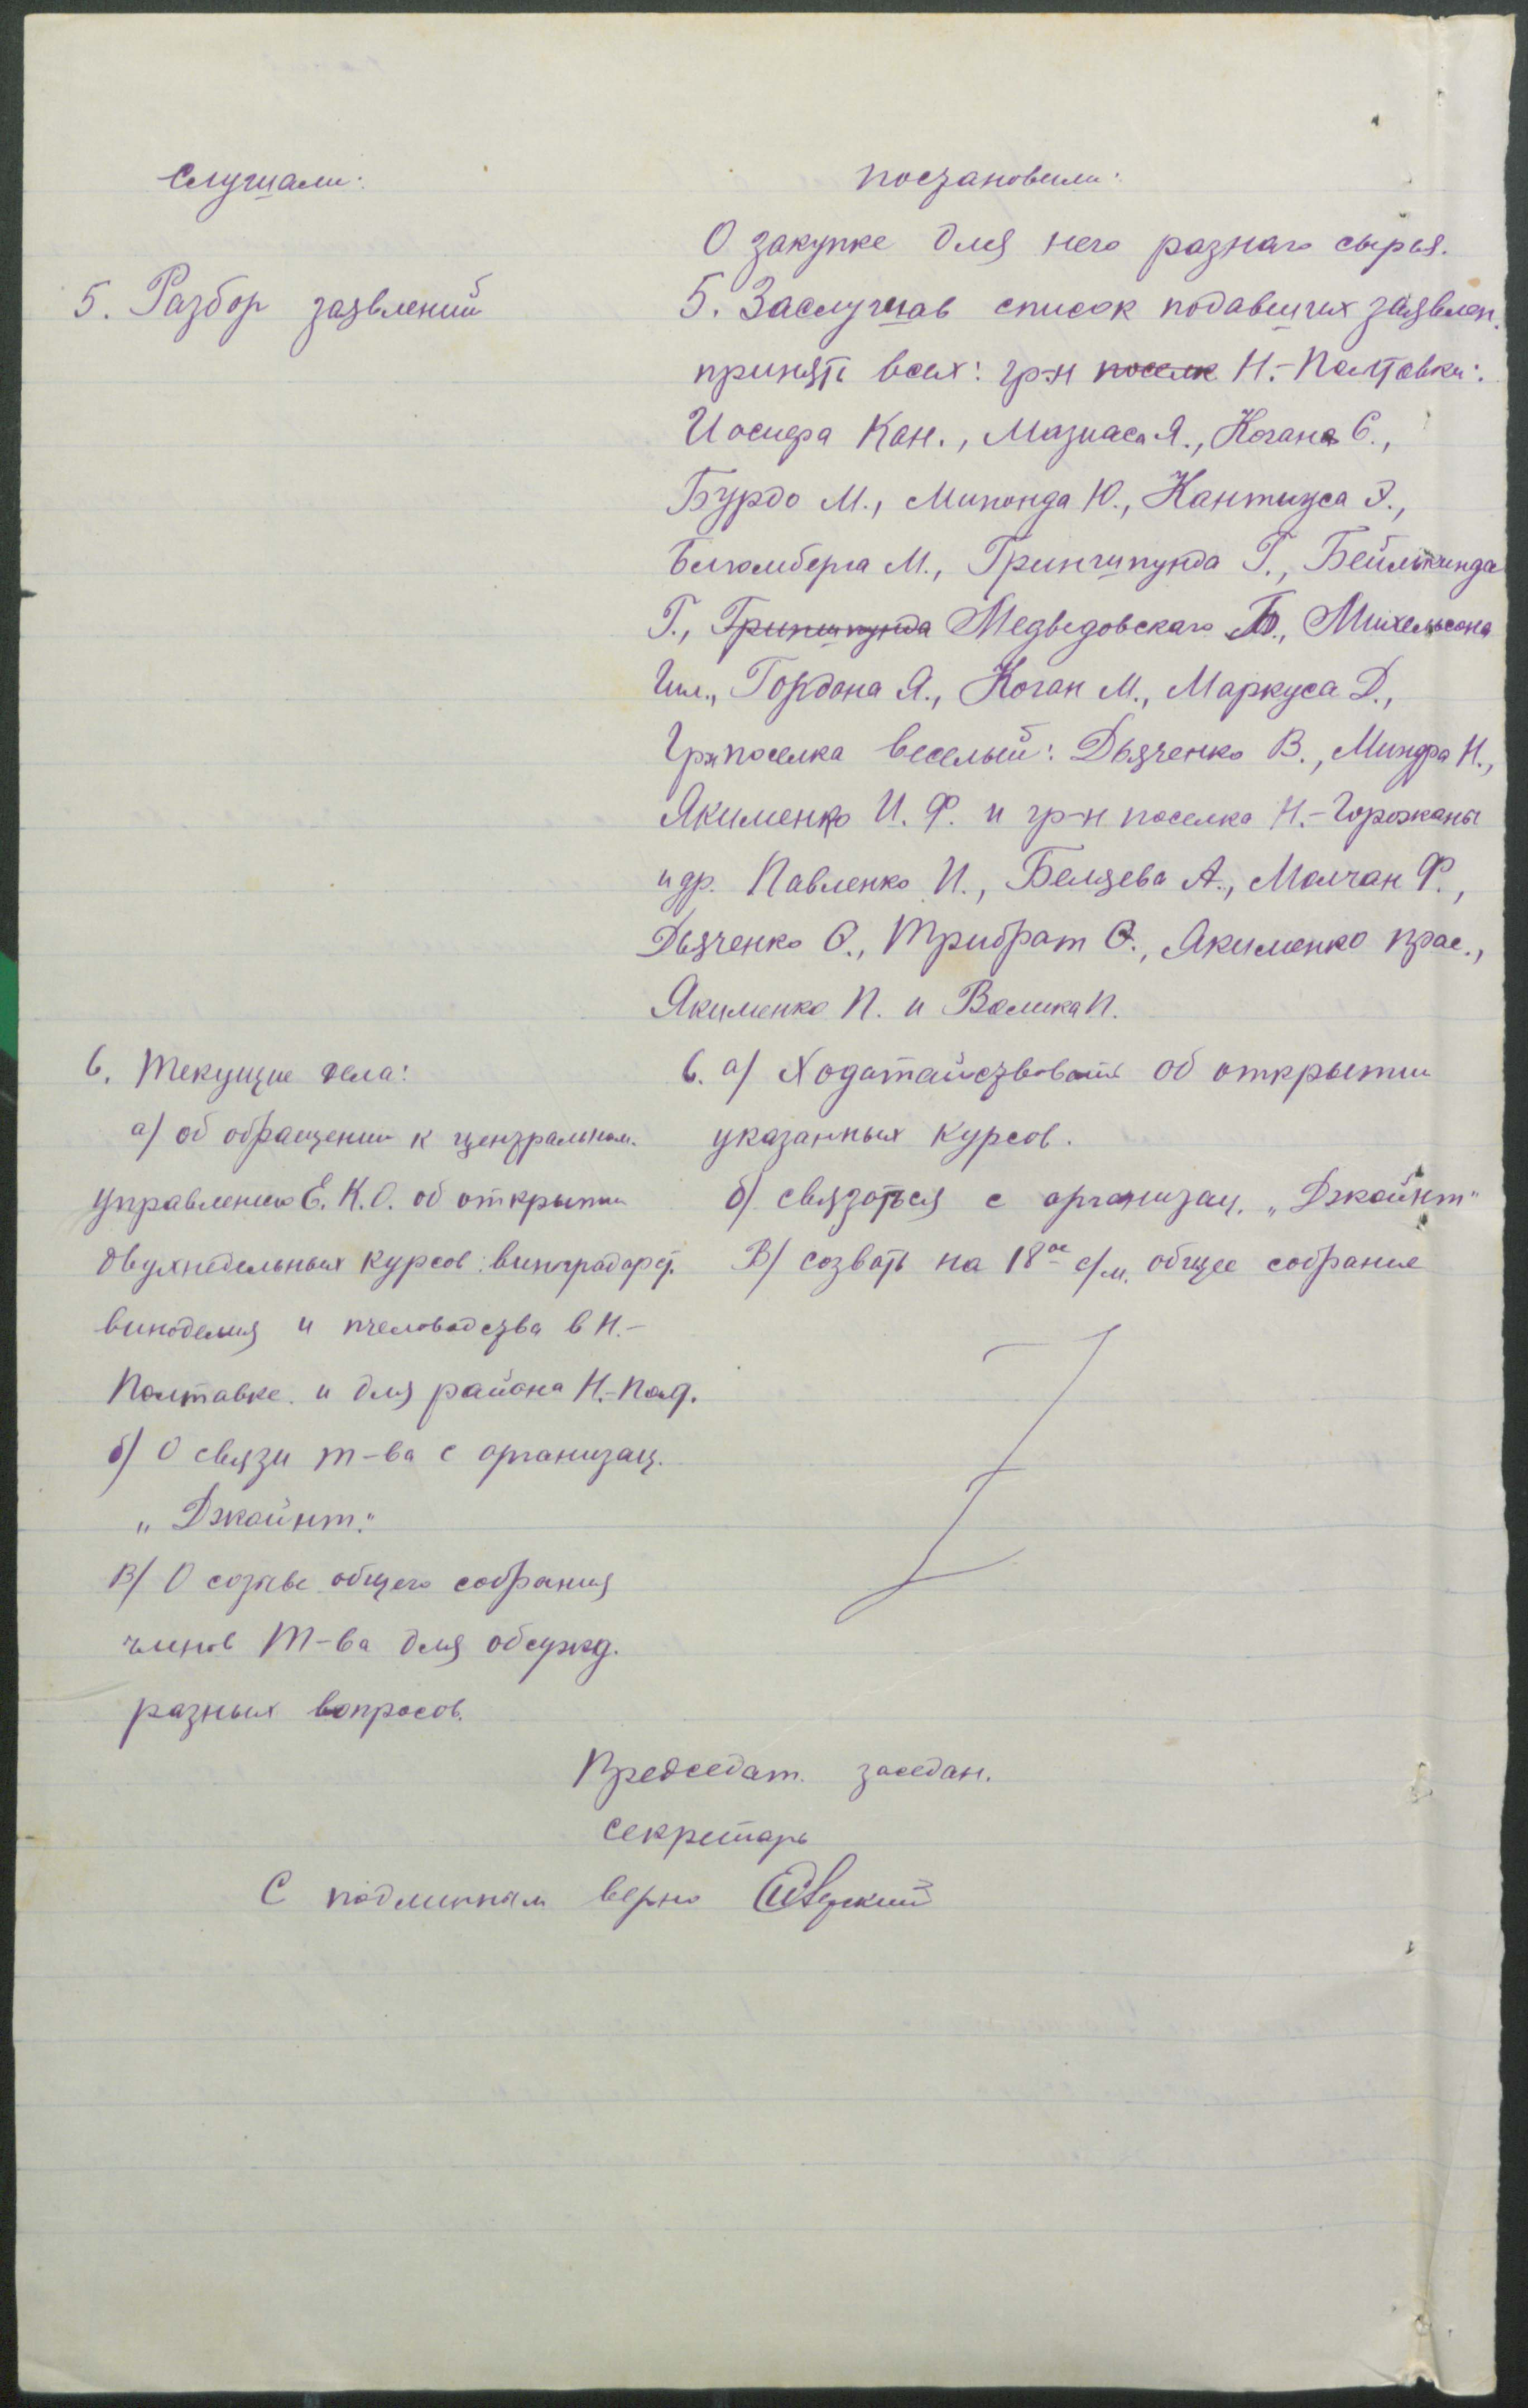 Слушали:
Постановили:
О закупке для него разнаго сырья.
5. Разбор заявлений
5. Заслушав список подавших заявлен.
принять всех: гр-н поселк Н.-Полтавки:
Иосифа Кан., Мазнаса Я., Когана С.,
Бурдо М., Мипонда Ю., Кантнуса Э.,
Блюмберга М., Гриншпунда Г., Бейлькинда
Г., Гриншпунда Медведовскаго Б., Михельсона
Ил., Гордона Я., Коган М., Маркуса Д.,
Гр-н поселка веселый: Дьяченко В., Миндра Н.,
Якименко И. Ф. и гр-н поселка Н.-Горожаны
и др. Павленко И., Беляева А., Молчан Ф.,
Дьяченко О., Трибрат О., Якименко Прас.,
Якименко П. и Волика П.
6. Текущие дела:
а) об обращении к центральном.
управлению Е. К. О. об открытии
двухнедельных курсов: виноградарст.
виноделия и пчеловодства в Н.-
Полтавке и для района Н.-Полт.
б) О связи т-ва с организац.
„Джойнт."
в) О созыве общего собрания
членов Т-ва для обсужд.
разных вопросов.
6. а) Ходатайствовать об открытии
указанных курсов.
б) связаться с организац. „Джойнт"
в) созвать на 18ое с/м. общее собрание
Председат. заседан.
Секретарь
С подлинным верно